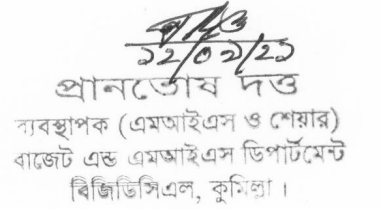 ১২/০২/২১
প্রানতোষ দত্ত
ব্যবস্থাপক (এমআইএস ও শেয়ার)
বাজেট এন্ড এমআইএস ডিপার্টমেন্ট
বিজিডিসিএল, কুমিল্লা।